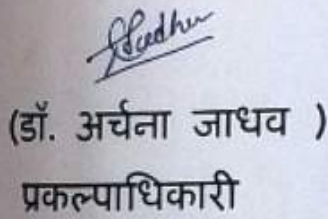 (डॉ. अर्चना जाधव )
प्रकल्पाधिकारी